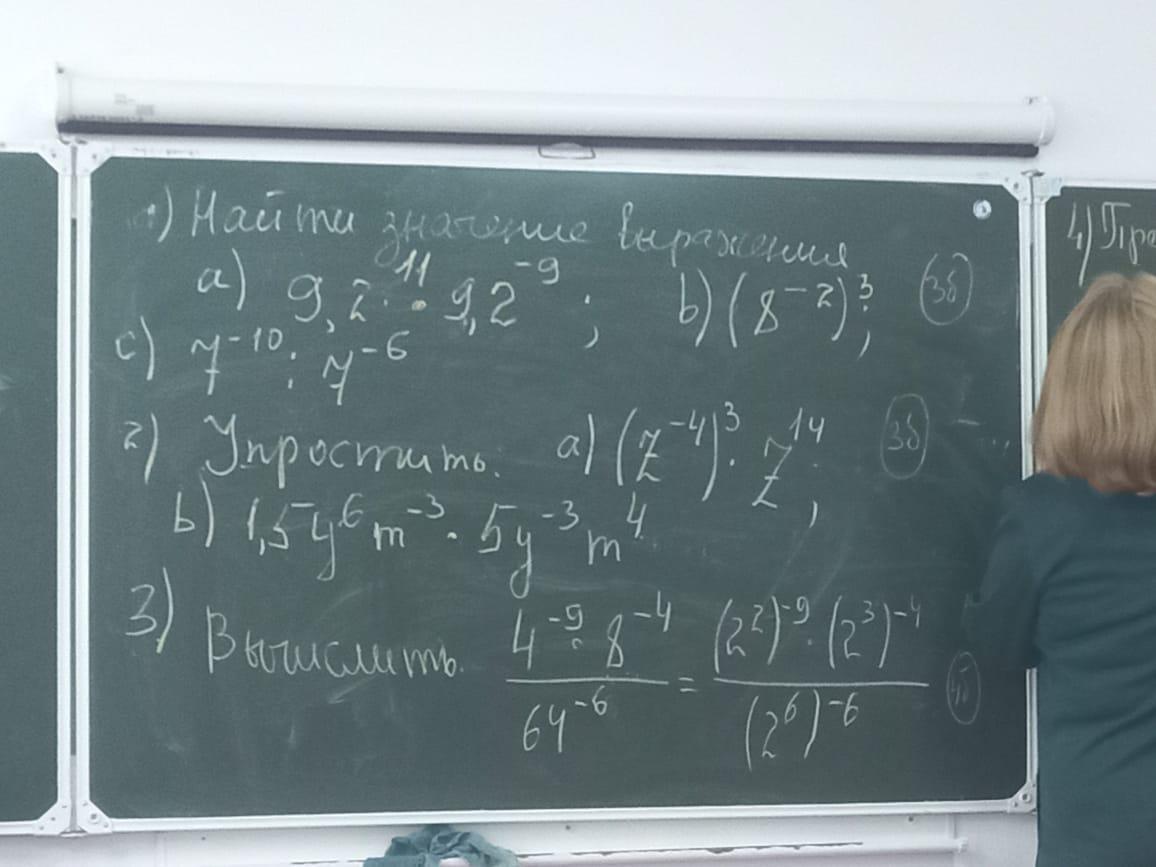 1) Найти значение выражения
a) 9,2¹¹ · 9,2⁻⁹ ; b) (8⁻²)³; (3б)
c) 7⁻¹⁰ : 7⁻⁶
2) Упростить. a) (z⁻⁴)³ · z¹⁴, (3б)
b) 1,5y⁶m⁻³ · 5y⁻³m⁴
3) Вычислить. (4⁻⁹ · 8⁻⁴)/64⁻⁶ = ((2²)⁻⁹ · (2³)⁻⁴)/(2⁶)⁻⁶ (4б)
4)